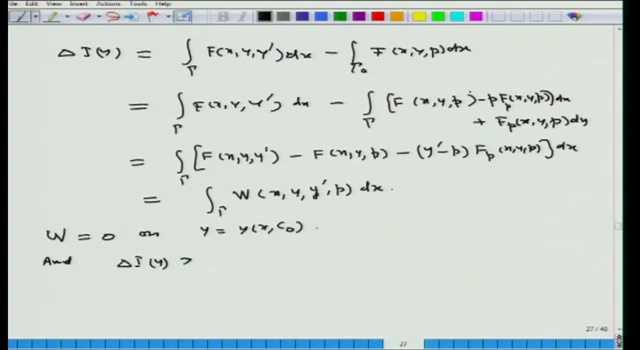 File Edit View Insert Actions Tools Help
ΔI(y) = ∫_Γ F(x, y, y') dx − ∫_Γ₀ F(x, y, p) dx
= ∫_Γ F(x, y, y') dx − ∫_Γ [F(x, y, p) − p F_p(x, y, p)] dx
+ F_p(x, y, p) dy
= ∫_Γ [F(x, y, y') − F(x, y, p) − (y' − p) F_p(x, y, p)] dx
= ∫_Γ W(x, y, y', p) dx.
W = 0 on y = y(x, C₀).
And ΔI(y) >
27 / 40
27